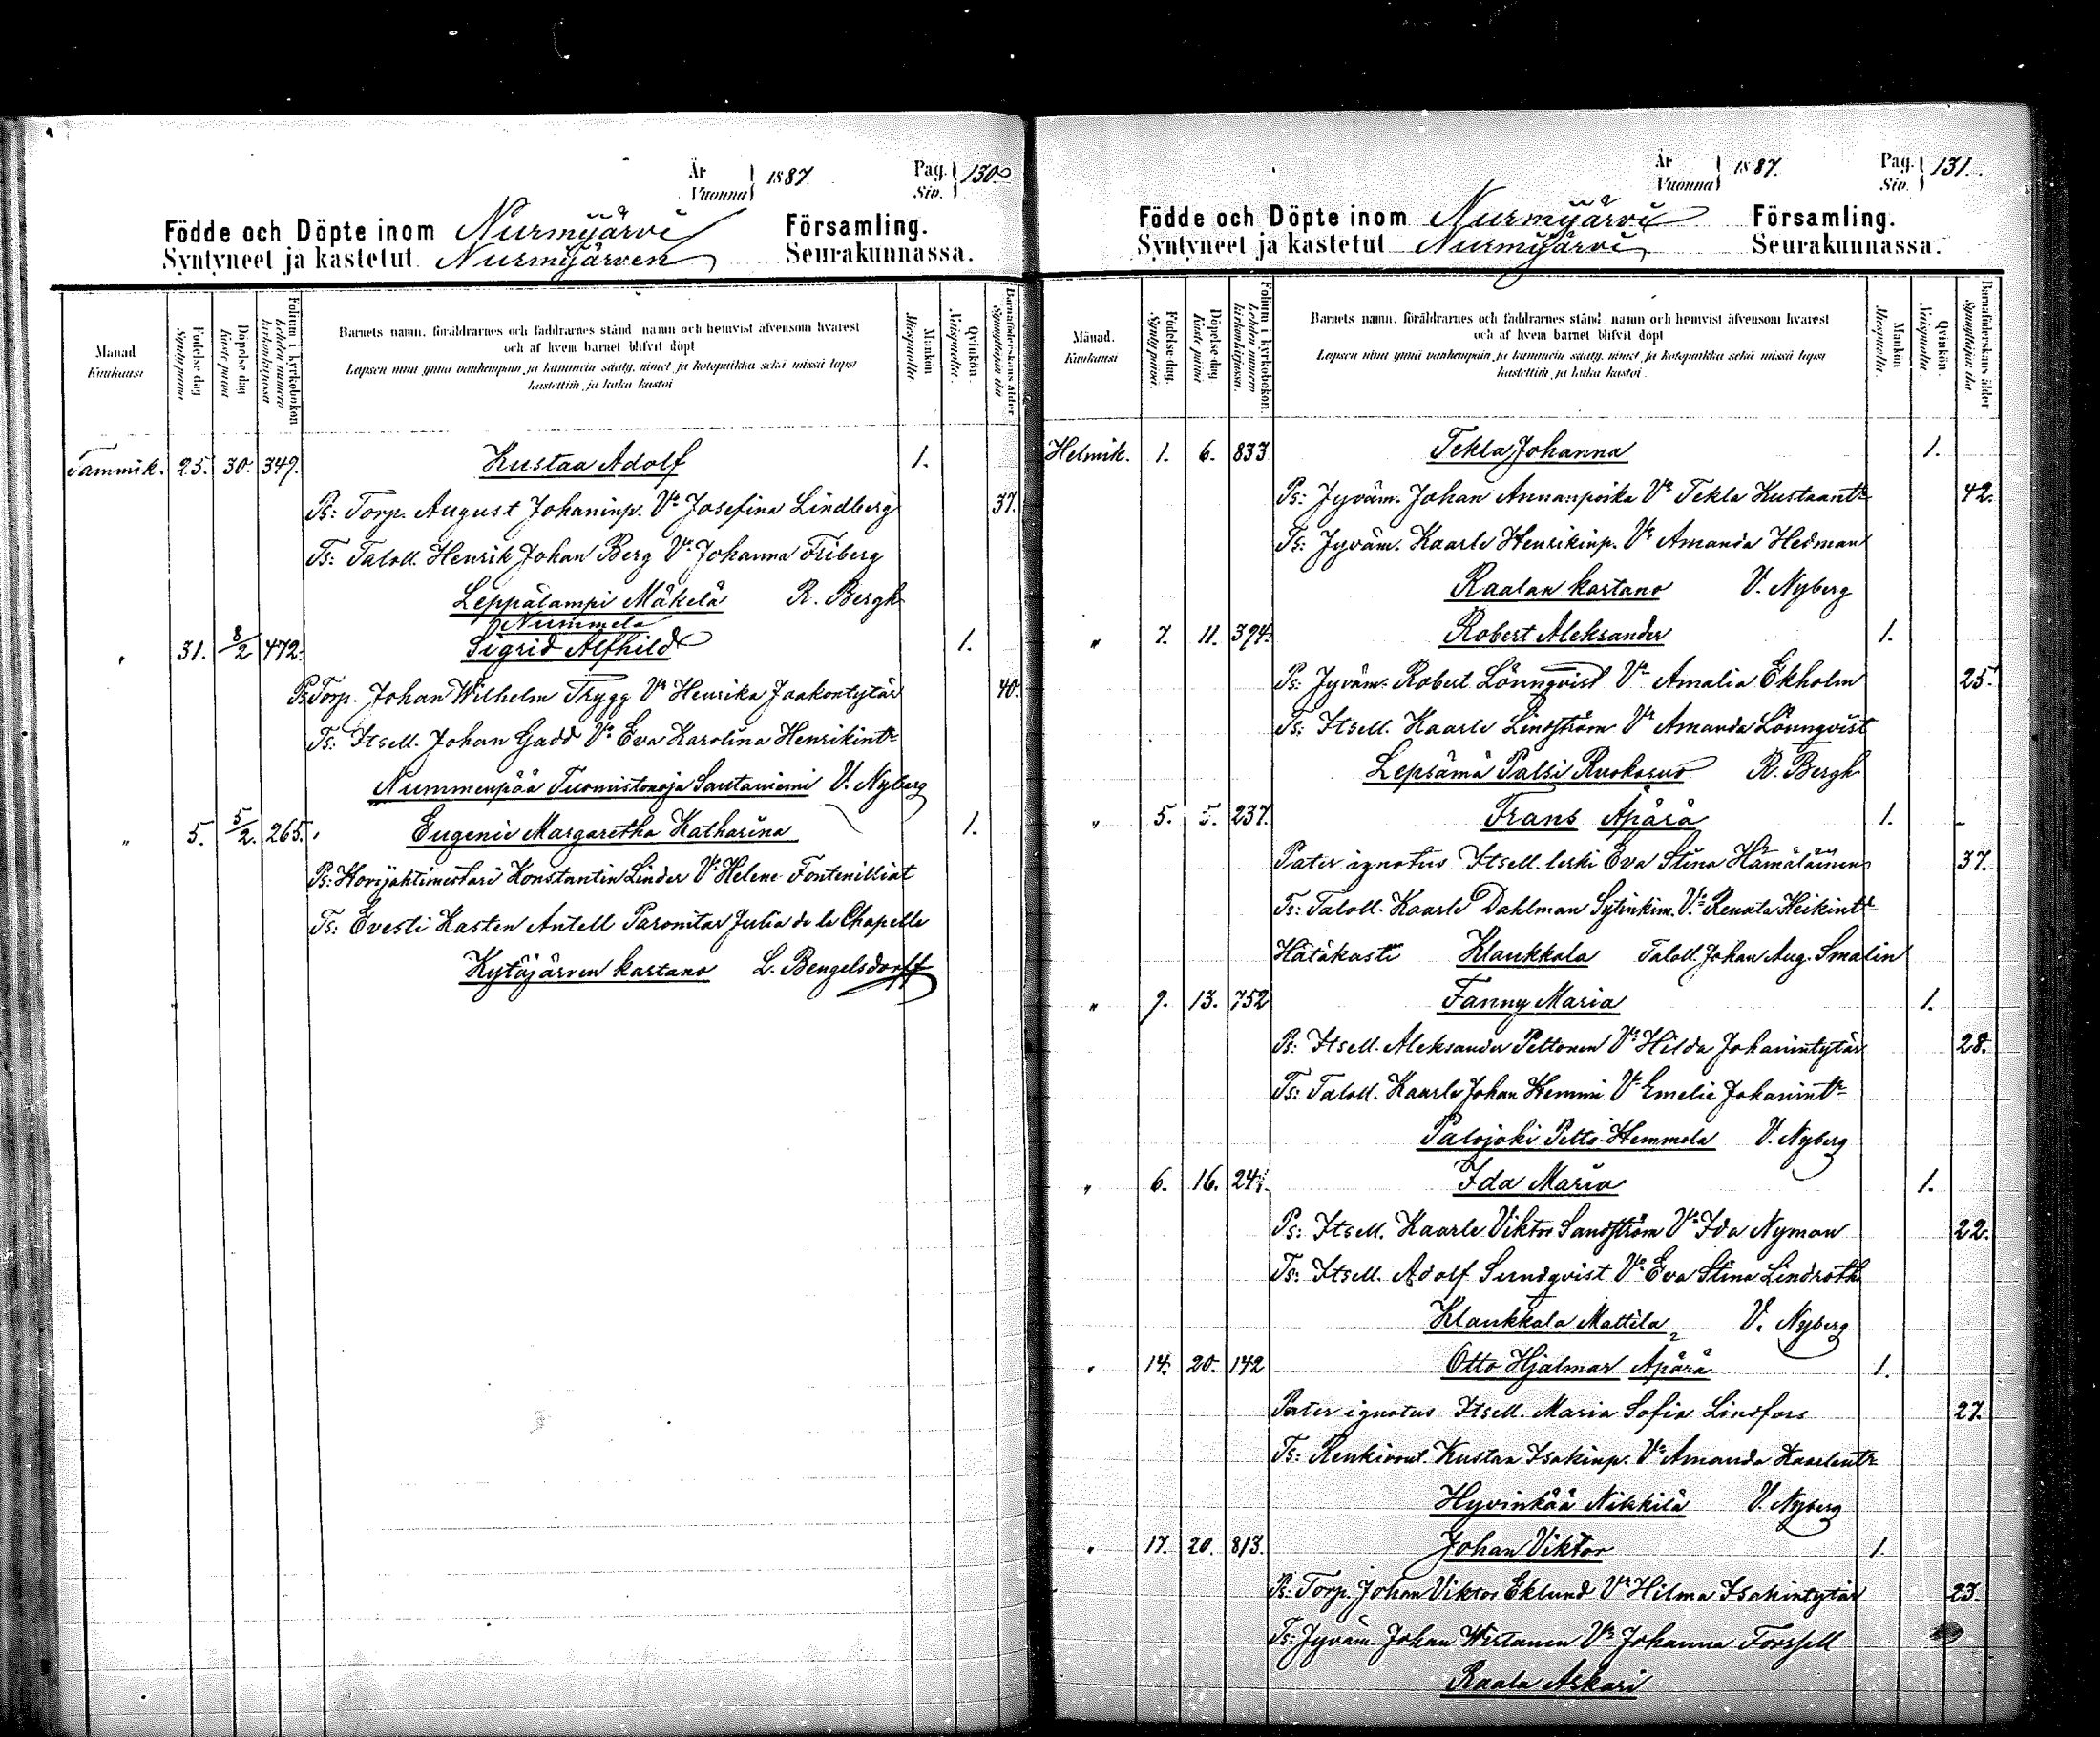 År
Vuonna 1887
Pag.
Siv. 130.
Födde och Döpte inom Nurmijärvi Församling.
Syntyneet ja kastetut Nurmijärven Seurakunnassa.
Månad
Kuukausi
Födelse dag
Syntypäivä
Döpelse dag
Kaste päivä
Folium i kyrkobokon
Lehden numero kirkonkirjassa
Barnets namn, föräldrarnes och faddrarnes stånd namn och hemvist äfvensom hvarest
och af hvem barnet blifvit döpt
Lapsen nimi ynnä vanhempain ja kummein sääty, nimet ja kotopaikka sekä missä lapsi
kastettiin ja kuka kastoi
Mankön
Miespuolta
Qvinkön.
Naispuolta.
Barnaföderskans ålder
Synnyttäjän ikä
Tammik. 25. 30. 349. Kustaa Adolf 1.
Ps: Torp. August Johaninp. Vo Josefina Lindberg 37.
Ts: Taloll. Henrik Johan Berg Vo Johanna Friberg
Leppälampi Mäkelä R. Bergh
Nummela
" 31. 8/2 472. Sigrid Alfhild 1.
Ps: Torp. Johan Wilhelm Trygg Vo Henrika Jaakontytär 40.
Ts: Itsell. Johan Gadd Vo Eva Karolina Henrikintr
Nummenpää Tuomistonoja Santaniemi V. Nyberg
" 5. 5/2. 265. Eugenie Margaretha Katharina 1.
Ps: Hovijahtimestari Konstantin Linder Vo Helene Fontenilliat
Ts: Evesti Kasten Antell Paronitar Julia de la Chapelle
Kytäjärven kartano L. Bengelsdorff
År
Vuonna 1887.
Pag.
Siv. 131.
Födde och Döpte inom Nurmijärvi Församling.
Syntyneet ja kastetut Nurmijärvi Seurakunnassa.
Månad.
Kuukausi
Födelse dag.
Synty päivä.
Döpelse dag
Kaste päivä
Folium i kyrkobokon.
Lehden numero kirkonkirjassa.
Barnets namn, föräldrarnes och faddrarnes stånd namn och hemvist äfvensom hvarest
och af hvem barnet blifvit döpt
Lapsen nimi ynnä vanhempain ja kummein sääty, nimet ja kotopaikka sekä missä lapsi
kastettiin, ja kuka kastoi.
Mankön
Miespuolta.
Qvinkön.
Naispuolta.
Barnaföderskans ålder
Synnyttäjän ikä
Helmik. 1. 6. 833 Tekla Johanna 1.
Ps: Jyväm. Johan Annanpoika Vo Tekla Kustaantr 42.
Ts: Jyväm. Kaarle Henrikinp. Vo Amanda Hedman
Raalan kartano V. Nyberg
" 7. 11. 394. Robert Aleksander 1.
Ps: Jyväm. Robert Lönnqvist Vo Amalia Ekholm 25.
Ts: Itsell. Kaarle Lindström Vo Amanda Lönnqvist
Lepsämä Palsi Ruokosuo R. Bergh
" 5. 5. 237. Frans Äpärä 1.
Pater ignotus Itsell. leski Eva Stina Hämäläinen 37.
Ts: Taloll. Kaarle Dahlman Sytinkim. Vo Renata Heikintr
Hätäkaste Klaukkala Taloll. Johan Aug. Smalin
" 9. 13. 752 Fanny Maria 1.
Ps: Itsell. Aleksander Peltonen Vo Hilda Johanintytär 28.
Ts: Taloll. Kaarle Johan Hemmi Vo Emelie Johanintr
Palojoki Pelto-Hemmola V. Nyberg
" 6. 16. 241. Ida Maria 1.
Ps: Itsell. Kaarle Viktor Sandström Vo Ida Nyman 22.
Ts: Itsell. Adolf Sundqvist Vo Eva Stina Lindroth
Klaukkala Mattila V. Nyberg
" 14. 20. 142 Otto Hjalmar Äpärä 1.
Pater ignotus Itsell. Maria Sofia Lindfors 27.
Ts: Renkivout. Kustaa Isakinp. Vo Amanda Kaarlentr
Hyvinkää Nikkilä V. Nyberg
" 17. 20. 813. Johan Viktor 1.
Ps: Torp. Johan Viktor Eklund Vo Hilma Isakintytär 23.
Ts: Jyväm. Johan Wirtanen Vo Johanna Forssell
Raala Askari